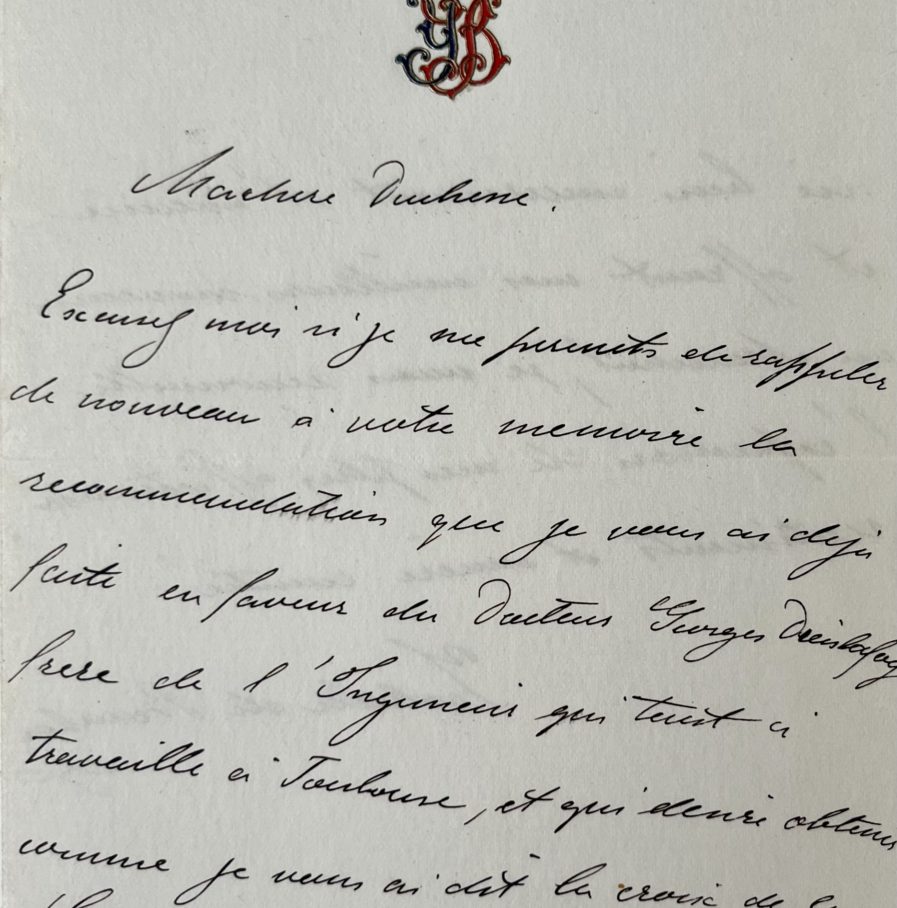 Ma chere Duchesse.
Excusez moi si je me permets de rappeler
de nouveau à votre memoire la
recommendation que je vous ai deja
faite en faveur du Docteur Georges
frere de l'Ingenieur qui
travaille à Toulouse, et qui desire obtenir
comme je vous ai dit la croix de la